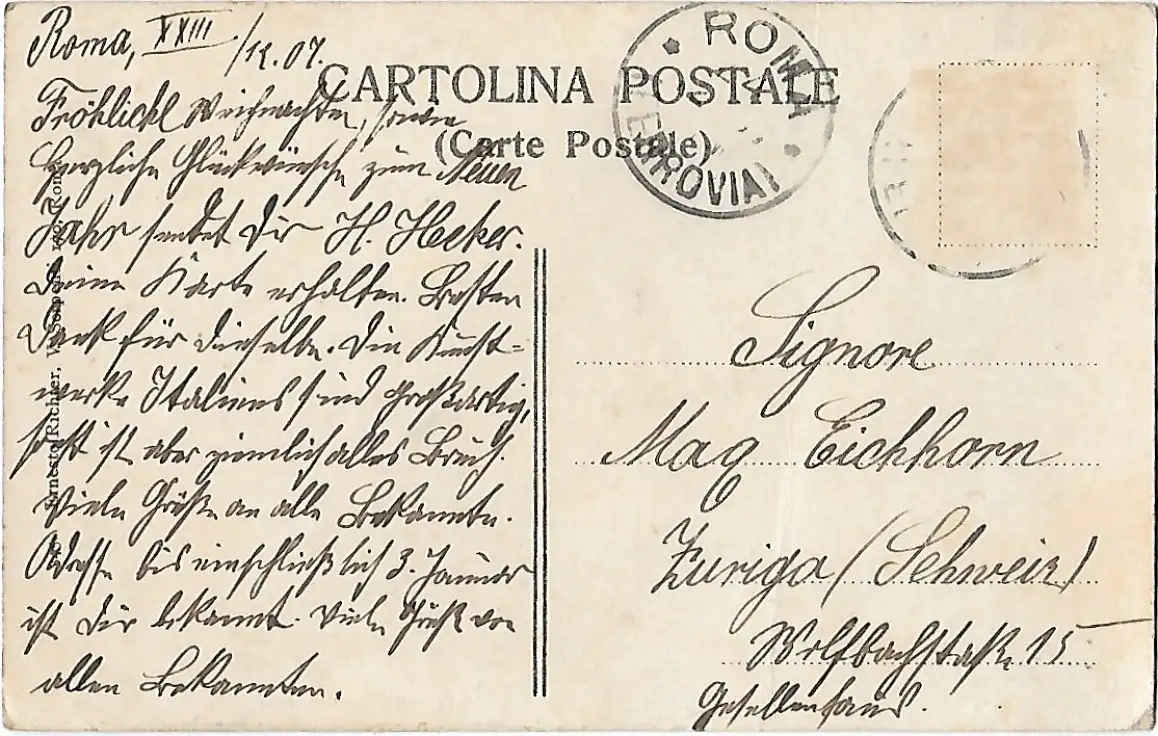 Roma, XXIII/12.07.
CARTOLINA POSTALE
(Carte Postale)
ROMA
FERROVIA
Fröhliche Weihnachten, sowie
herzliche Glückwünsche zum Neuen
Jahr sendet Dir H. Hecker.
Deine Karte erhalten. Besten
Dank für dieselbe. Die Kunst-
werke Italiens sind großartig,
sonst ist aber ziemlich alles Bruch.
Viele Grüße an alle Bekannte.
Adresse bis einschließlich 3. Januar
ist Dir bekannt. Viele Grüße von
allen Bekannten.
Ernesto Richter, Roma
Signore
Max Eichhorn
Zurigo (Schweiz)
Wolfbachstraße 15
Gesellenhaus.